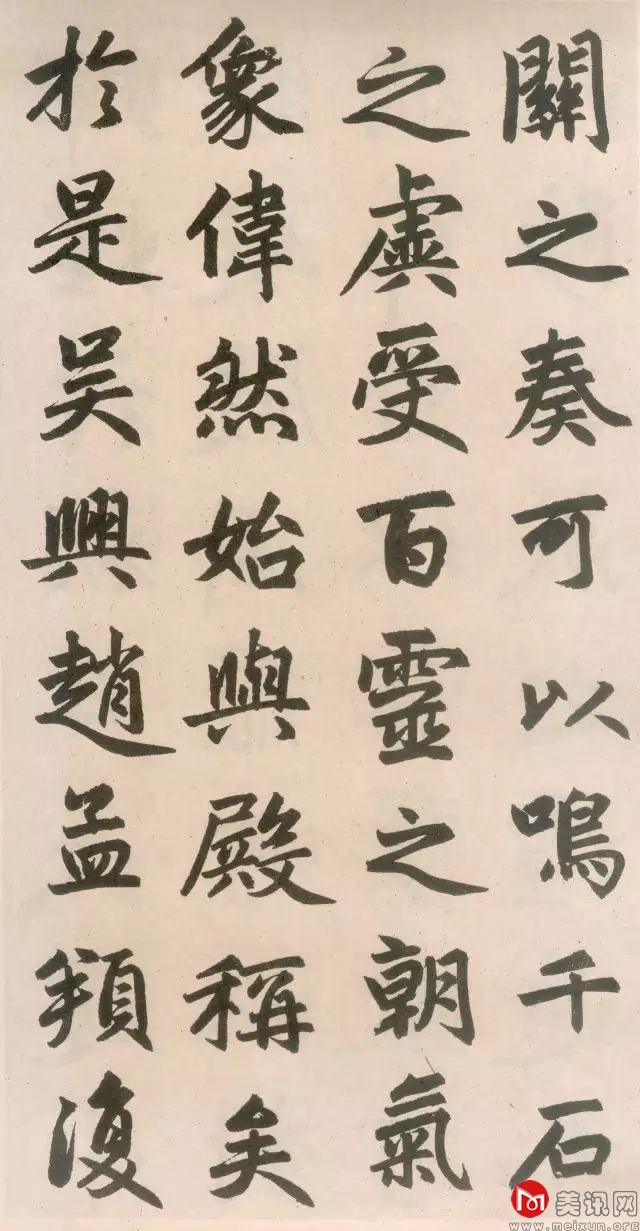 關之奏可以鳴千石
之虡受百靈之朝氣
象偉然始與殿稱矣
於是吳興趙孟頫復
美讯网
www.meixun.org